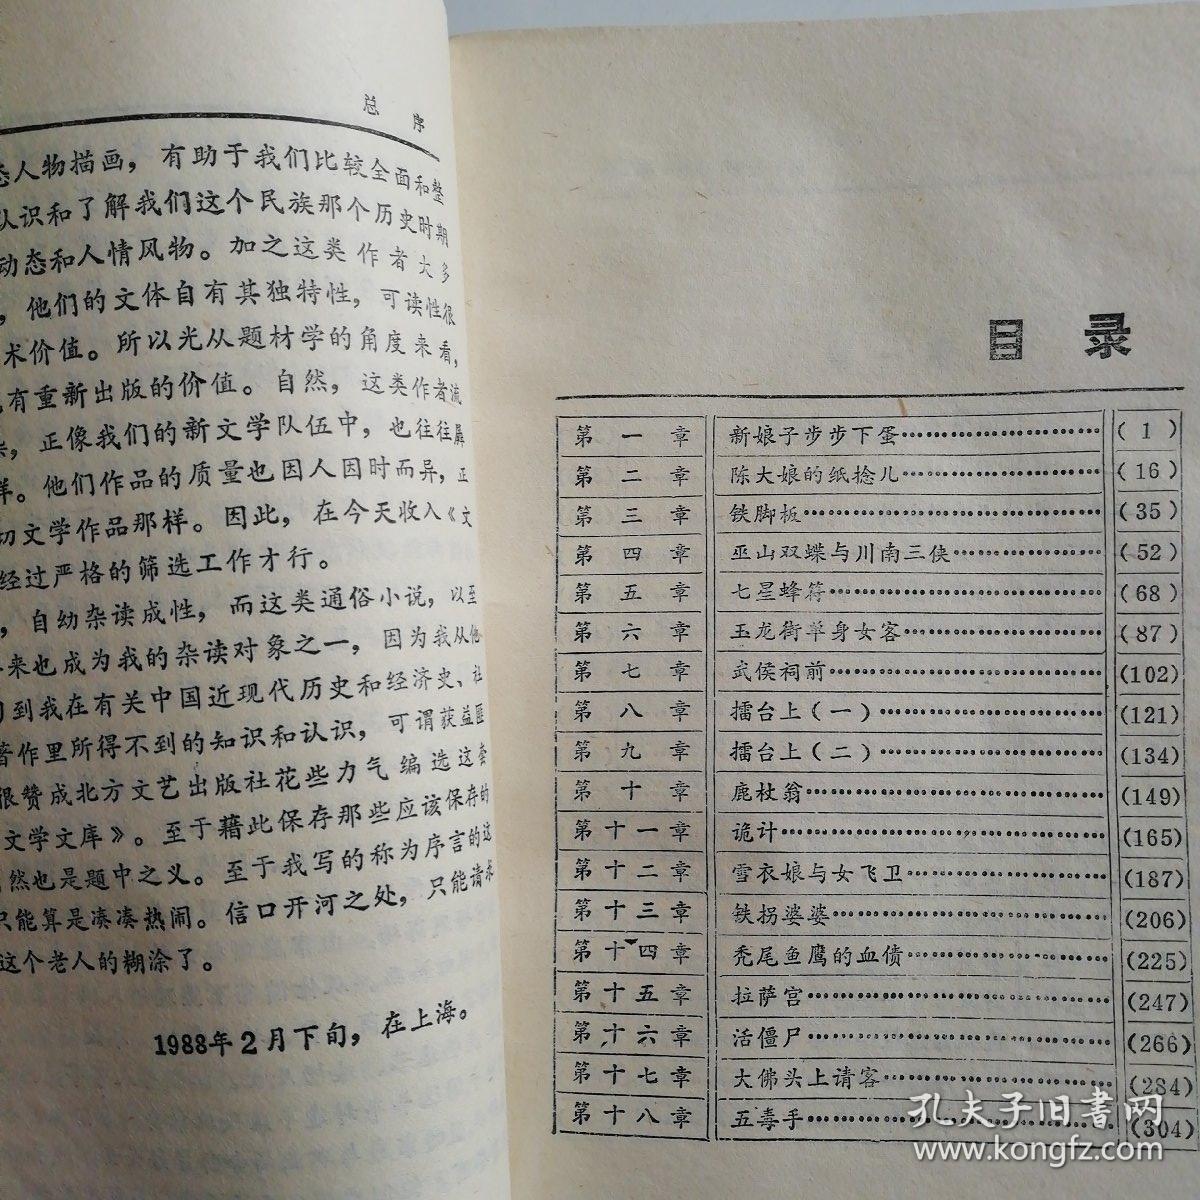 总 序
态人物描画，有助于我们比较全面和整
认识和了解我们这个民族那个历史时期
动态和人情风物。加之这类作者大多
，他们的文体自有其独特性，可读性很
术价值。所以光从题材学的角度来看，
有重新出版的价值。自然，这类作者流
，正像我们的新文学队伍中，也往往屬
样。他们作品的质量也因人因时而异，正
切文学作品那样。因此，在今天收入《文
经过严格的筛选工作才行。
，自幼杂读成性，而这类通俗小说，以至
来也成为我的杂读对象之一，因为我从他
到我在有关中国近现代历史和经济史、社
著作里所得不到的知识和认识，可谓获益匪
很赞成北方文艺出版社花些力气编选这套
文学文库》。至于藉此保存那些应该保存的
然也是题中之义。至于我写的称为序言的这
只能算是凑凑热闹。信口开河之处，只能请求
这个老人的糊涂了。
1988年2月下旬，在上海。
目 录
第一章 新娘子步步下蛋……(1)
第二章 陈大娘的纸捻儿……(16)
第三章 铁脚板……(35)
第四章 巫山双蝶与川南三侠……(52)
第五章 七星蜂符……(68)
第六章 玉龙街单身女客……(87)
第七章 武侯祠前……(102)
第八章 擂台上(一)……(121)
第九章 擂台上(二)……(134)
第十章 鹿杖翁……(149)
第十一章 诡计……(165)
第十二章 雪衣娘与女飞卫……(187)
第十三章 铁拐婆婆……(206)
第十四章 秃尾鱼鹰的血债……(225)
第十五章 拉萨宫……(247)
第十六章 活僵尸……(266)
第十七章 大佛头上请客……(284)
第十八章 五毒手……(304)
孔夫子旧书网
www.kongfz.com